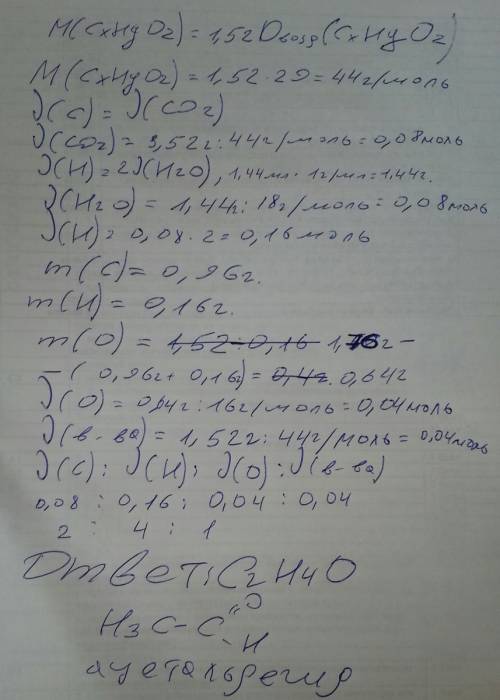 M(CxHyOz) = 1,52 Dвозд (CxHyOz)
M(CxHyOz) = 1,52 · 29 = 44 г/моль
ν(C) = ν(CO2)
ν(CO2) = 3,52 г : 44 г/моль = 0,08 моль
ν(H) = 2ν(H2O), 1,44 мл · 1 г/мл = 1,44 г.
ν(H2O) = 1,44 г : 18 г/моль = 0,08 моль
ν(H) = 0,08 · 2 = 0,16 моль
m(C) = 0,96 г.
m(H) = 0,16 г.
m(O) = 1,52 - 0,16 1,76 г -
- (0,96 г + 0,16 г) = 0,4 г. 0,64 г
ν(O) = 0,64 г : 16 г/моль = 0,04 моль
ν(в-ва) = 1,52 г : 44 г/моль = 0,04 моль
ν(C) : ν(H) : ν(O) : ν(в-ва)
0,08 : 0,16 : 0,04 : 0,04
2 : 4 : 1
Ответ: C2H4O
H3C - C
O
H
ацетальдегид